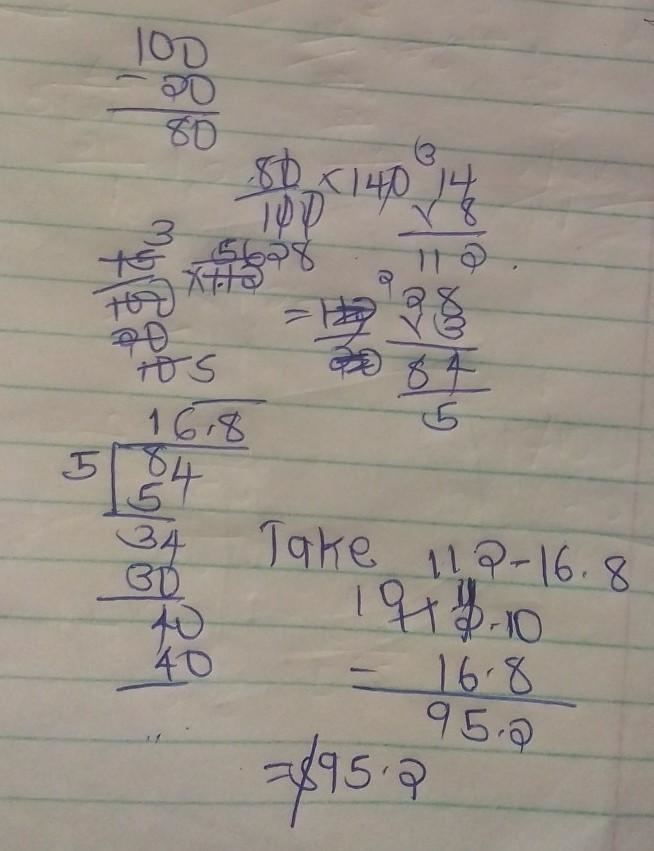 100
- 20
80
80/100 × 140
3
14
× 8
112
3
15/100
20
10 5
× 112
56 28
= 112/20
2
28
× 3
84
5
16.8
5 84
5
34
30
40
40
Take 112 - 16.8
10 11 .10
- 16.8
95.2
= $95.2